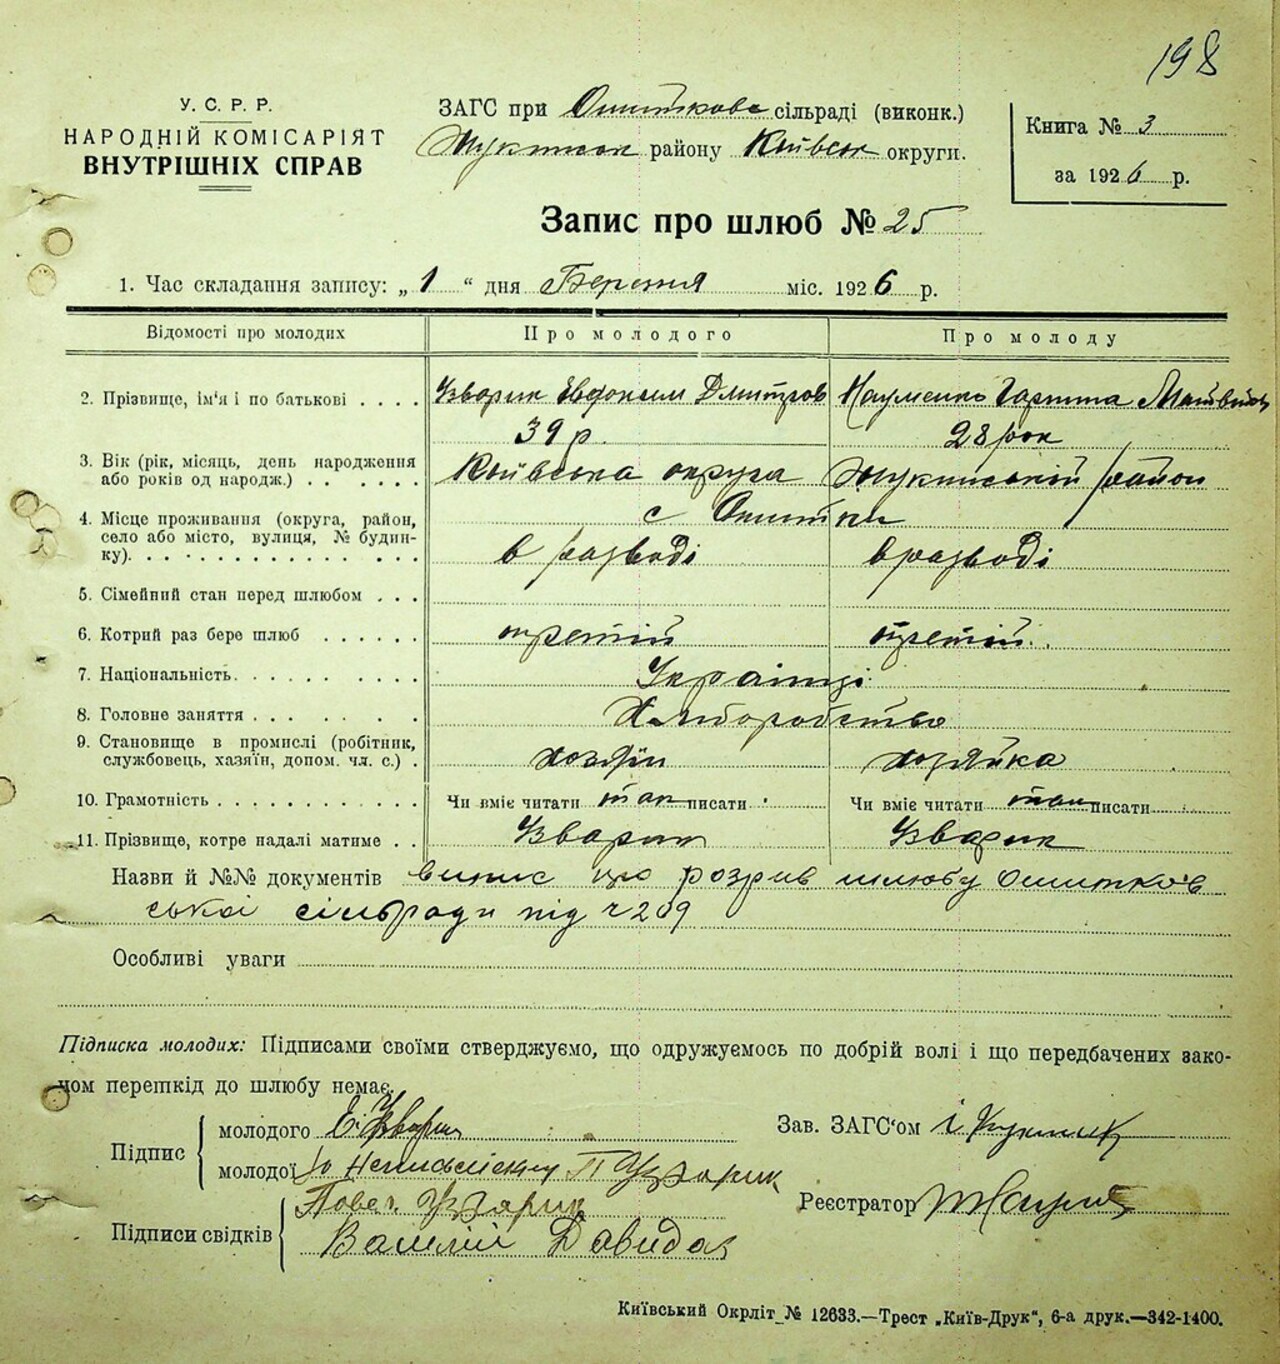 198
У. С. Р. Р.
НАРОДНІЙ КОМІСАРІЯТ
ВНУТРІШНІХ СПРАВ
ЗАГС при сільраді (виконк.)
району Київськ округи.
Книга № 3
за 1926 р.
Запис про шлюб № 25
1. Час складання запису: „ 1 “ дня Березня міс. 1926 р.
Відомості про молодих
Про молодого
Про молоду
2. Прізвище, ім'я і по батькові . . . .
Узварик Евдоким Дмитров
Науменко Матвійов
39 р.
28 рок
3. Вік (рік, місяць, день народження
або років од народж.) . . . . . .
Київська округа
район
4. Місце проживання (округа, район,
село або місто, вулиця, № будин-
ку). . . . . . . . . . . . .
с Ошитки
в разводі
в разводі
5. Сімейний стан перед шлюбом . . .
6. Котрий раз бере шлюб . . . . . .
третій
третій
7. Національність. . . . . . . . . .
Українці
8. Головне заняття . . . . . . . .
Хліборобство
9. Становище в промислі (робітник,
службовець, хазяїн, допом. чл. с.) .
хозяїн
хозяйка
10. Грамотність . . . . . . . . . . .
Чи вміє читати так писати
Чи вміє читати так писати
11. Прізвище, котре надалі матиме . .
Узварик
Узварик
Назви й №№ документів випис про розрив шлюбу Ошитків
ської сільради під ч 209
Особливі уваги
Підписка молодих: Підписами своїми стверджуємо, що одружуємось по добрій волі і що передбачених зако-
ном перешкід до шлюбу немає.
Підпис
молодого Е. Узварик
молодої За неписьменну П Узварик
Зав. ЗАГС'ом
Реєстратор
Підписи свідків
Узварик
Василій Давидов
Київський Окрліт № 12633.—Трест „Київ-Друк“, 6-а друк.—342-1400.